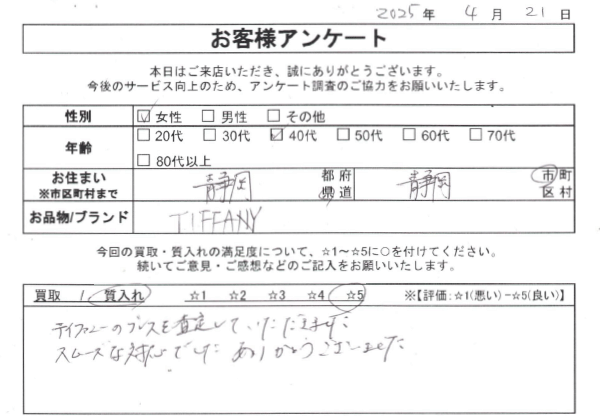 2025年 4月 21日
お客様アンケート
本日はご来店いただき、誠にありがとうございます。
今後のサービス向上のため、アンケート調査のご協力をお願いいたします。
性別 ☑女性 □男性 □その他
年齢 □20代 □30代 ☑40代 □50代 □60代 □70代
□80代以上
お住まい ※市区町村まで 静岡 都府県道 静岡 市町区村
お品物/ブランド TIFFANY
今回の買取・質入れの満足度について、☆1～☆5に○を付けてください。
続いてご意見・ご感想などのご記入をお願いいたします。
買取 / 質入れ ☆1 ☆2 ☆3 ☆4 ☆5 ※【評価:☆1(悪い)-☆5(良い)】
ティファニーのブレスを査定していただきました
スムーズな対応でした ありがとうございました